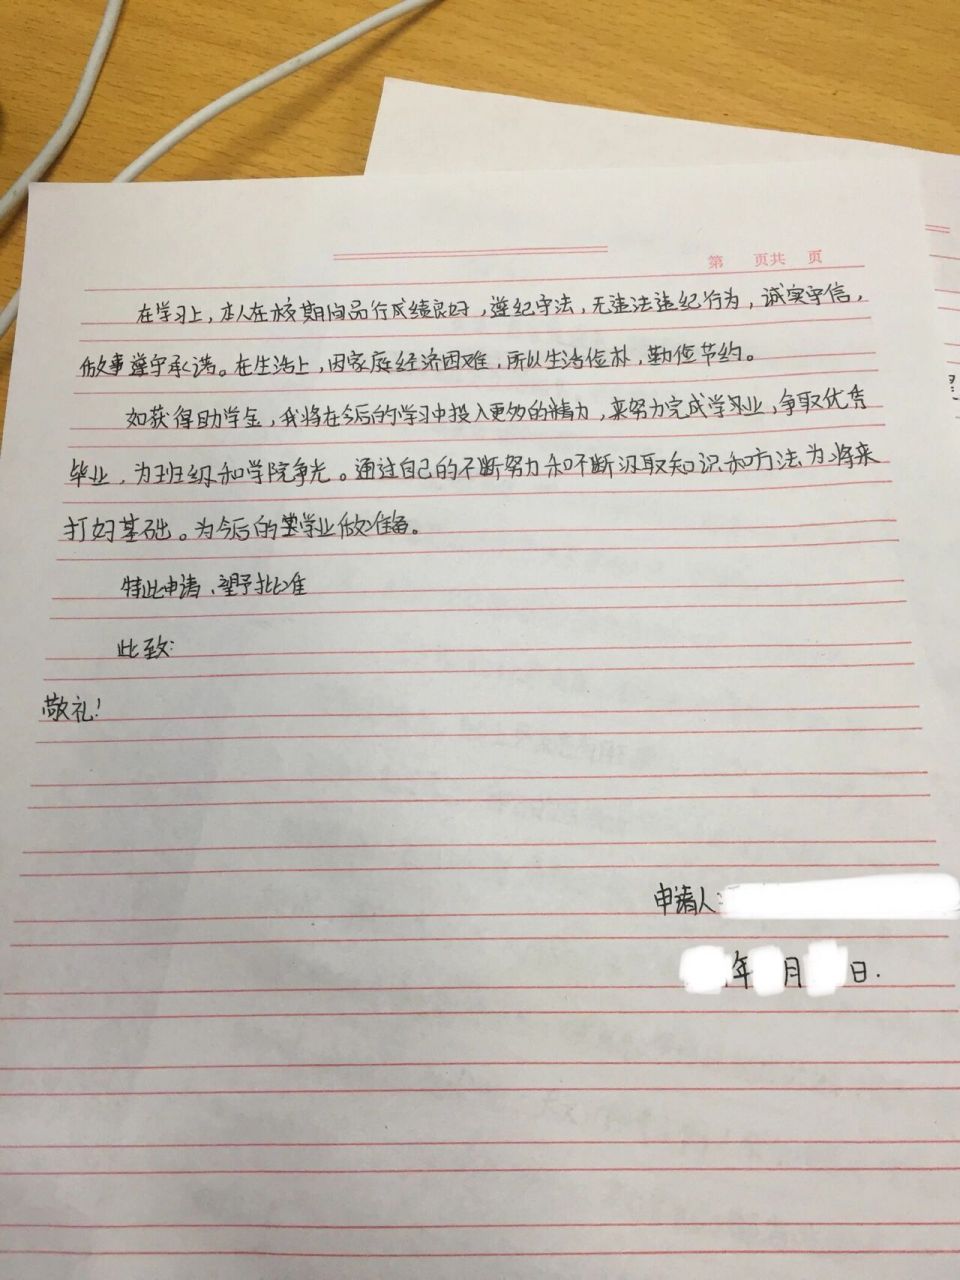 第 页共 页
在学习上，本人在校期间品行成绩良好，遵纪守法，无违法违纪行为，诚实守信，
做事遵守承诺。在生活上，因家庭经济困难，所以生活俭朴，勤俭节约。
如获得助学金，我将在今后的学习中投入更多的精力，来努力完成学业，争取优秀
毕业，为班级和学院争光。通过自己的不断努力和不断汲取知识和方法为将来
打好基础。为今后的学业做准备。
特此申请、望予批准
此致:
敬礼！
申请人:
年 月 日.